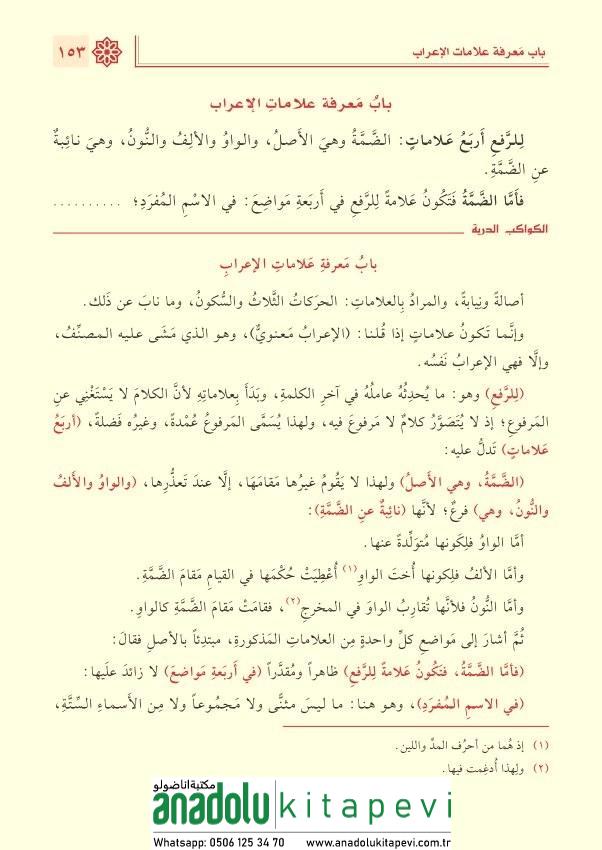 باب مَعرفة علامات الإعراب
١٥٣
بابُ مَعرفة علاماتِ الإعراب
لِلرَّفعِ أَربَعُ عَلاماتٍ: الضَّمَّةُ وهيَ الأَصلُ، والواوُ والألِفُ والنُّونُ، وهيَ نائِبةٌ
عنِ الضَّمَّةِ.
فأَمَّا الضَّمَّةُ فَتَكُونُ عَلامةً لِلرَّفعِ في أَربَعةِ مَواضِعَ: في الاسْمِ المُفرَدِ؛ ..........
الكواكب الدرية
بابُ مَعرفةِ عَلاماتِ الإعرابِ
أصالةً ونِيابةً، والمرادُ بِالعلاماتِ: الحرَكاتُ الثَّلاثُ والسُّكونُ، وما نابَ عن ذَلك.
وإنَّما تَكونُ علاماتٍ إذا قُلنا: (الإعرابُ مَعنويٌّ)، وهو الذي مَشَى عليه المصنِّفُ،
وإلَّا فهي الإعرابُ نَفسُه.
(لِلرَّفعِ) وهو: ما يُحدِثُه عاملُه في آخرِ الكلمةِ، وبَدَأَ بِعلاماتِهِ لأنَّ الكلامَ لا يَسْتَغْنِي عنِ
المَرفوعِ؛ إذ لا يُتَصَوَّرُ كلامٌ لا مَرفوعَ فيه، ولهذا يُسَمَّى المَرفوعُ عُمْدةً، وغيرُه فَضلةً، (أربَعُ
عَلاماتٍ) تَدلُّ عليه:
(الضَّمَّةُ، وهي الأَصلُ) ولهذا لا يَقُومُ غيرُها مَقامَهَا، إلَّا عندَ تَعذُّرِها، (والواوُ والألفُ
والنُّونُ، وهي) فرعٌ؛ لأنَّها (نائِبةٌ عنِ الضَّمَّةِ):
أمَّا الواوُ فلِكونِها مُتَولِّدةً عنها.
وأمَّا الألفُ فلِكونِها أُختَ الواوِ(١) أُعْطِيَتْ حُكْمَها في القيامِ مَقامَ الضَّمَّةِ.
وأمَّا النُّونُ فلأنَّها تُقارِبُ الواوَ في المخرجِ(٢)، فقامَتْ مَقامَ الضَّمَّةِ كالواوِ.
ثُمَّ أشارَ إلى مَواضعِ كلِّ واحدةٍ مِن العلاماتِ المَذكورةِ، مبتدِئاً بالأصلِ فقالَ:
(فأمَّا الضَّمَّةُ، فتَكُونُ عَلامةً لِلرَّفعِ) ظاهراً ومُقدَّراً (في أَربَعةِ مَواضعَ) لا زائدَ علَيها:
(في الاسمِ المُفرَدِ)، وهو هنا: ما ليسَ مثنًّى ولا مَجمُوعاً ولا مِن الأَسماءِ السِّتَّةِ،
(١) إذ هُما من أحرُف المدِّ واللين.
(٢) ولِهذا أُدغِمت فيها.
مكتبة اناضولو
anadolu kitapevi
Whatsapp: 0506 125 34 70 www.anadolukitapevi.com.tr